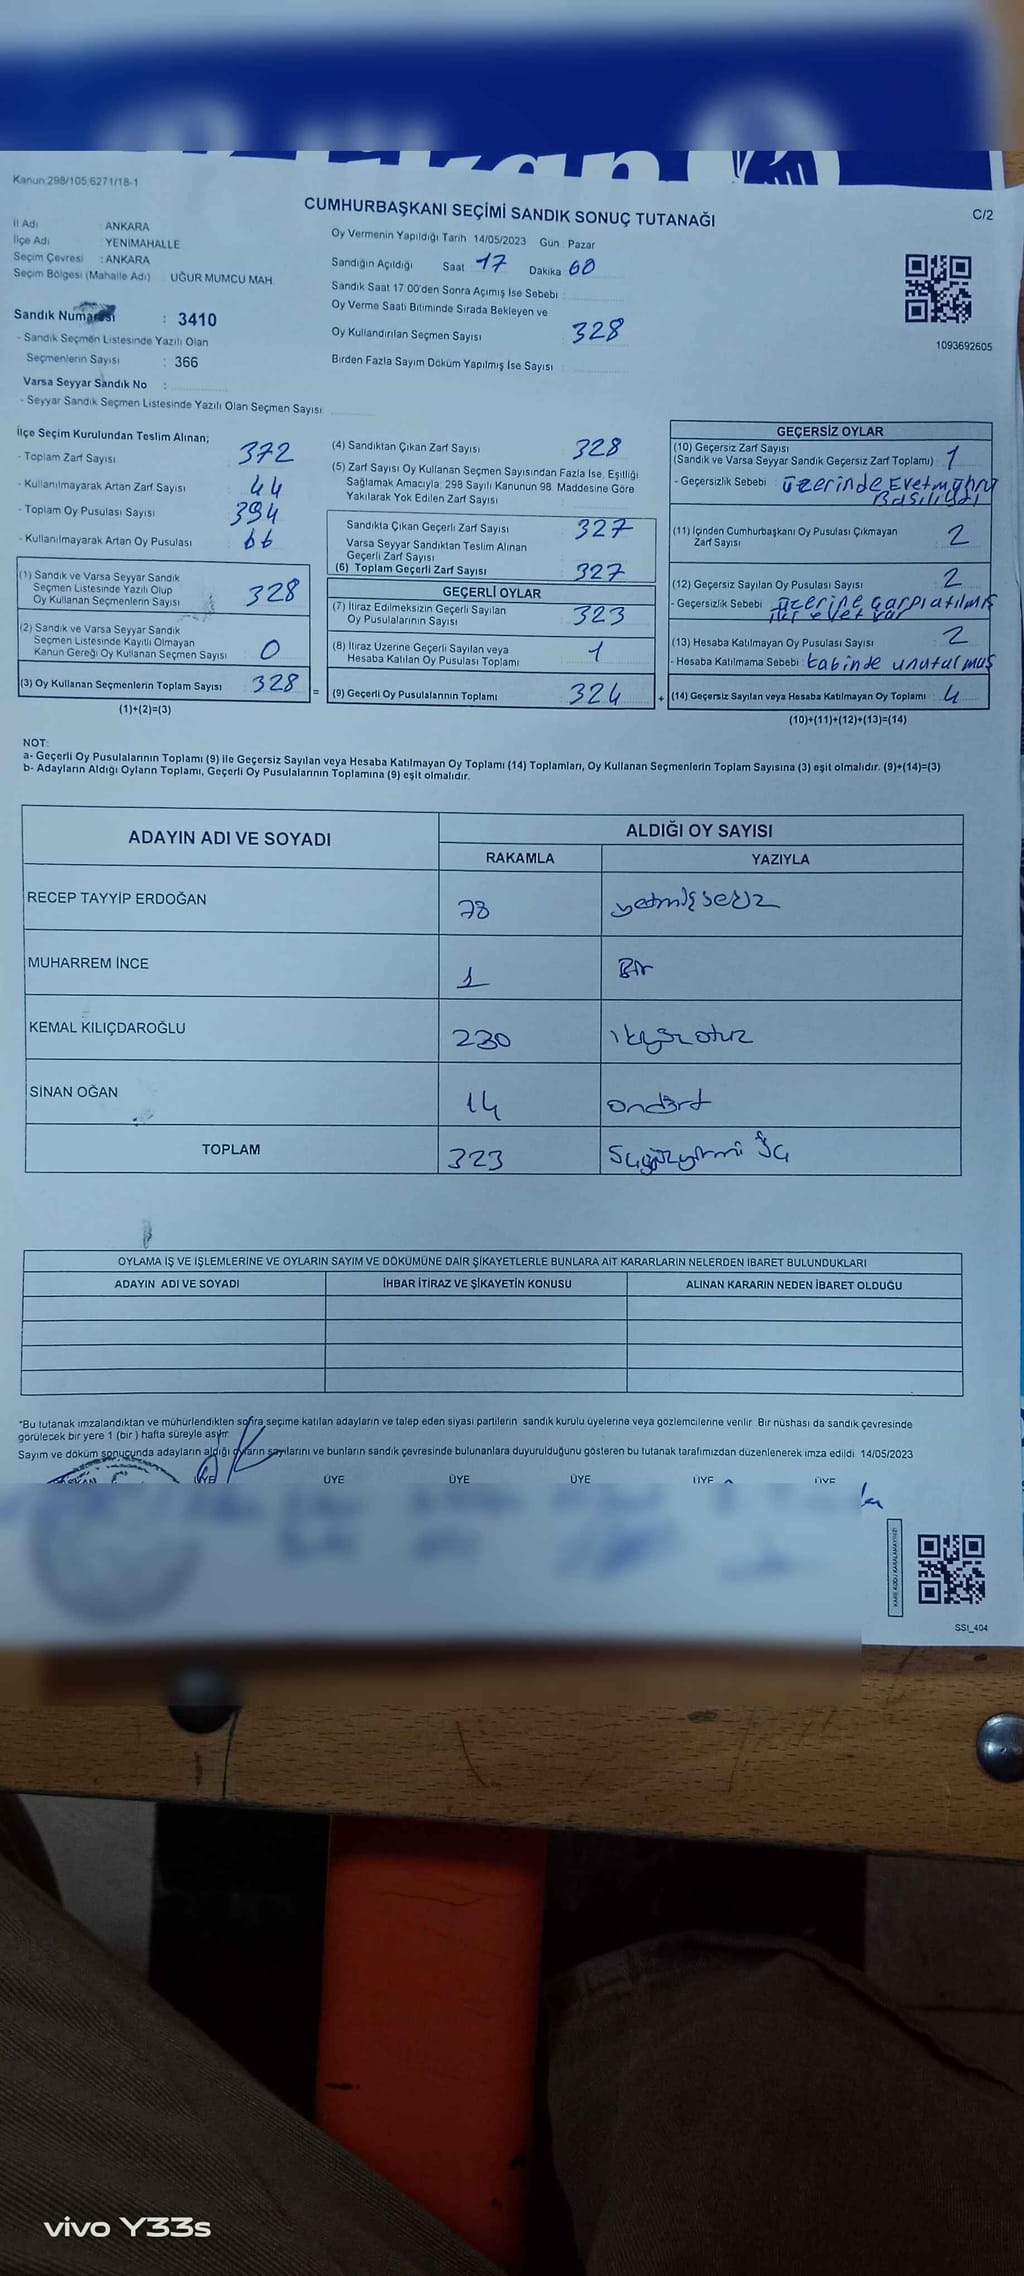 Kanun:298/105,6271/18-1
CUMHURBAŞKANI SEÇİMİ SANDIK SONUÇ TUTANAĞI
C/2
İl Adı : ANKARA
İlçe Adı : YENİMAHALLE
Seçim Çevresi : ANKARA
Seçim Bölgesi (Mahalle Adı) UĞUR MUMCU MAH.
Sandık Numarası : 3410
- Sandık Seçmen Listesinde Yazılı Olan
Seçmenlerin Sayısı : 366
Varsa Seyyar Sandık No :
- Seyyar Sandık Seçmen Listesinde Yazılı Olan Seçmen Sayısı
Oy Vermenin Yapıldığı Tarih 14/05/2023 Gün : Pazar
Sandığın Açıldığı Saat 17 Dakika 60
Sandık Saat 17:00'den Sonra Açımış İse Sebebi :
Oy Verme Saati Bitiminde Sırada Bekleyen ve
Oy Kullandırılan Seçmen Sayısı : 328
Birden Fazla Sayım Döküm Yapılmış İse Sayısı :
1093692605
İlçe Seçim Kurulundan Teslim Alınan;
- Toplam Zarf Sayısı : 372
- Kullanılmayarak Artan Zarf Sayısı : 44
- Toplam Oy Pusulası Sayısı : 394
- Kullanılmayarak Artan Oy Pusulası : 66
(1) Sandık ve Varsa Seyyar Sandık
Seçmen Listesinde Yazılı Olup
Oy Kullanan Seçmenlerin Sayısı : 328
(2) Sandık ve Varsa Seyyar Sandık
Seçmen Listesinde Kayıtlı Olmayan
Kanun Gereği Oy Kullanan Seçmen Sayısı : 0
(3) Oy Kullanan Seçmenlerin Toplam Sayısı : 328
(1)+(2)=(3)
=
(4) Sandıktan Çıkan Zarf Sayısı : 328
(5) Zarf Sayısı Oy Kullanan Seçmen Sayısından Fazla İse, Eşitliği
Sağlamak Amacıyla; 298 Sayılı Kanunun 98. Maddesine Göre
Yakılarak Yok Edilen Zarf Sayısı :
Sandıkta Çıkan Geçerli Zarf Sayısı : 327
Varsa Seyyar Sandıktan Teslim Alınan
Geçerli Zarf Sayısı :
(6) Toplam Geçerli Zarf Sayısı : 327
GEÇERLİ OYLAR
(7) İtiraz Edilmeksizin Geçerli Sayılan
Oy Pusulalarının Sayısı : 323
(8) İtiraz Üzerine Geçerli Sayılan veya
Hesaba Katılan Oy Pusulası Toplamı : 1
(9) Geçerli Oy Pusulalarının Toplamı : 324
+
GEÇERSİZ OYLAR
(10) Geçersiz Zarf Sayısı
(Sandık ve Varsa Seyyar Sandık Geçersiz Zarf Toplamı) : 1
- Geçersizlik Sebebi : üzerinde Evet mührü
Basılıydı
(11) İçinden Cumhurbaşkanı Oy Pusulası Çıkmayan
Zarf Sayısı : 2
(12) Geçersiz Sayılan Oy Pusulası Sayısı : 2
- Geçersizlik Sebebi : üzerine çarpı atılmış
iki evet var
(13) Hesaba Katılmayan Oy Pusulası Sayısı : 2
- Hesaba Katılmama Sebebi : kabinde unutulmuş
(14) Geçersiz Sayılan veya Hesaba Katılmayan Oy Toplamı : 4
(10)+(11)+(12)+(13)=(14)
NOT:
a- Geçerli Oy Pusulalarının Toplamı (9) ile Geçersiz Sayılan veya Hesaba Katılmayan Oy Toplamı (14) Toplamları, Oy Kullanan Seçmenlerin Toplam Sayısına (3) eşit olmalıdır. (9)+(14)=(3)
b- Adayların Aldığı Oyların Toplamı, Geçerli Oy Pusulalarının Toplamına (9) eşit olmalıdır.
ADAYIN ADI VE SOYADI
ALDIĞI OY SAYISI
RAKAMLA YAZIYLA
RECEP TAYYİP ERDOĞAN 78 yetmişsekiz
MUHARREM İNCE 1 Bir
KEMAL KILIÇDAROĞLU 230 ikiyüz otuz
SİNAN OĞAN 14 ondört
TOPLAM 323 üçyüzyirmi üç
OYLAMA İŞ VE İŞLEMLERİNE VE OYLARIN SAYIM VE DÖKÜMÜNE DAİR ŞİKAYETLERLE BUNLARA AİT KARARLARIN NELERDEN İBARET BULUNDUKLARI
ADAYIN ADI VE SOYADI İHBAR İTİRAZ VE ŞİKAYETİN KONUSU ALINAN KARARIN NEDEN İBARET OLDUĞU
*Bu tutanak imzalandıktan ve mühürlendikten sonra seçime katılan adayların ve talep eden siyasi partilerin sandık kurulu üyelerine veya gözlemcilerine verilir. Bir nüshası da sandık çevresinde
görülecek bir yere 1 (bir) hafta süreyle asılır.
Sayım ve döküm sonucunda adayların aldığı oyların sayılarını ve bunların sandık çevresinde bulunanlara duyurulduğunu gösteren bu tutanak tarafımızdan düzenlenerek imza edildi. 14/05/2023
ÜYE ÜYE ÜYE ÜYE ÜYE ÜYE
KARE KODU KARALAMAYINIZ!
SSI_404
vivo Y33s